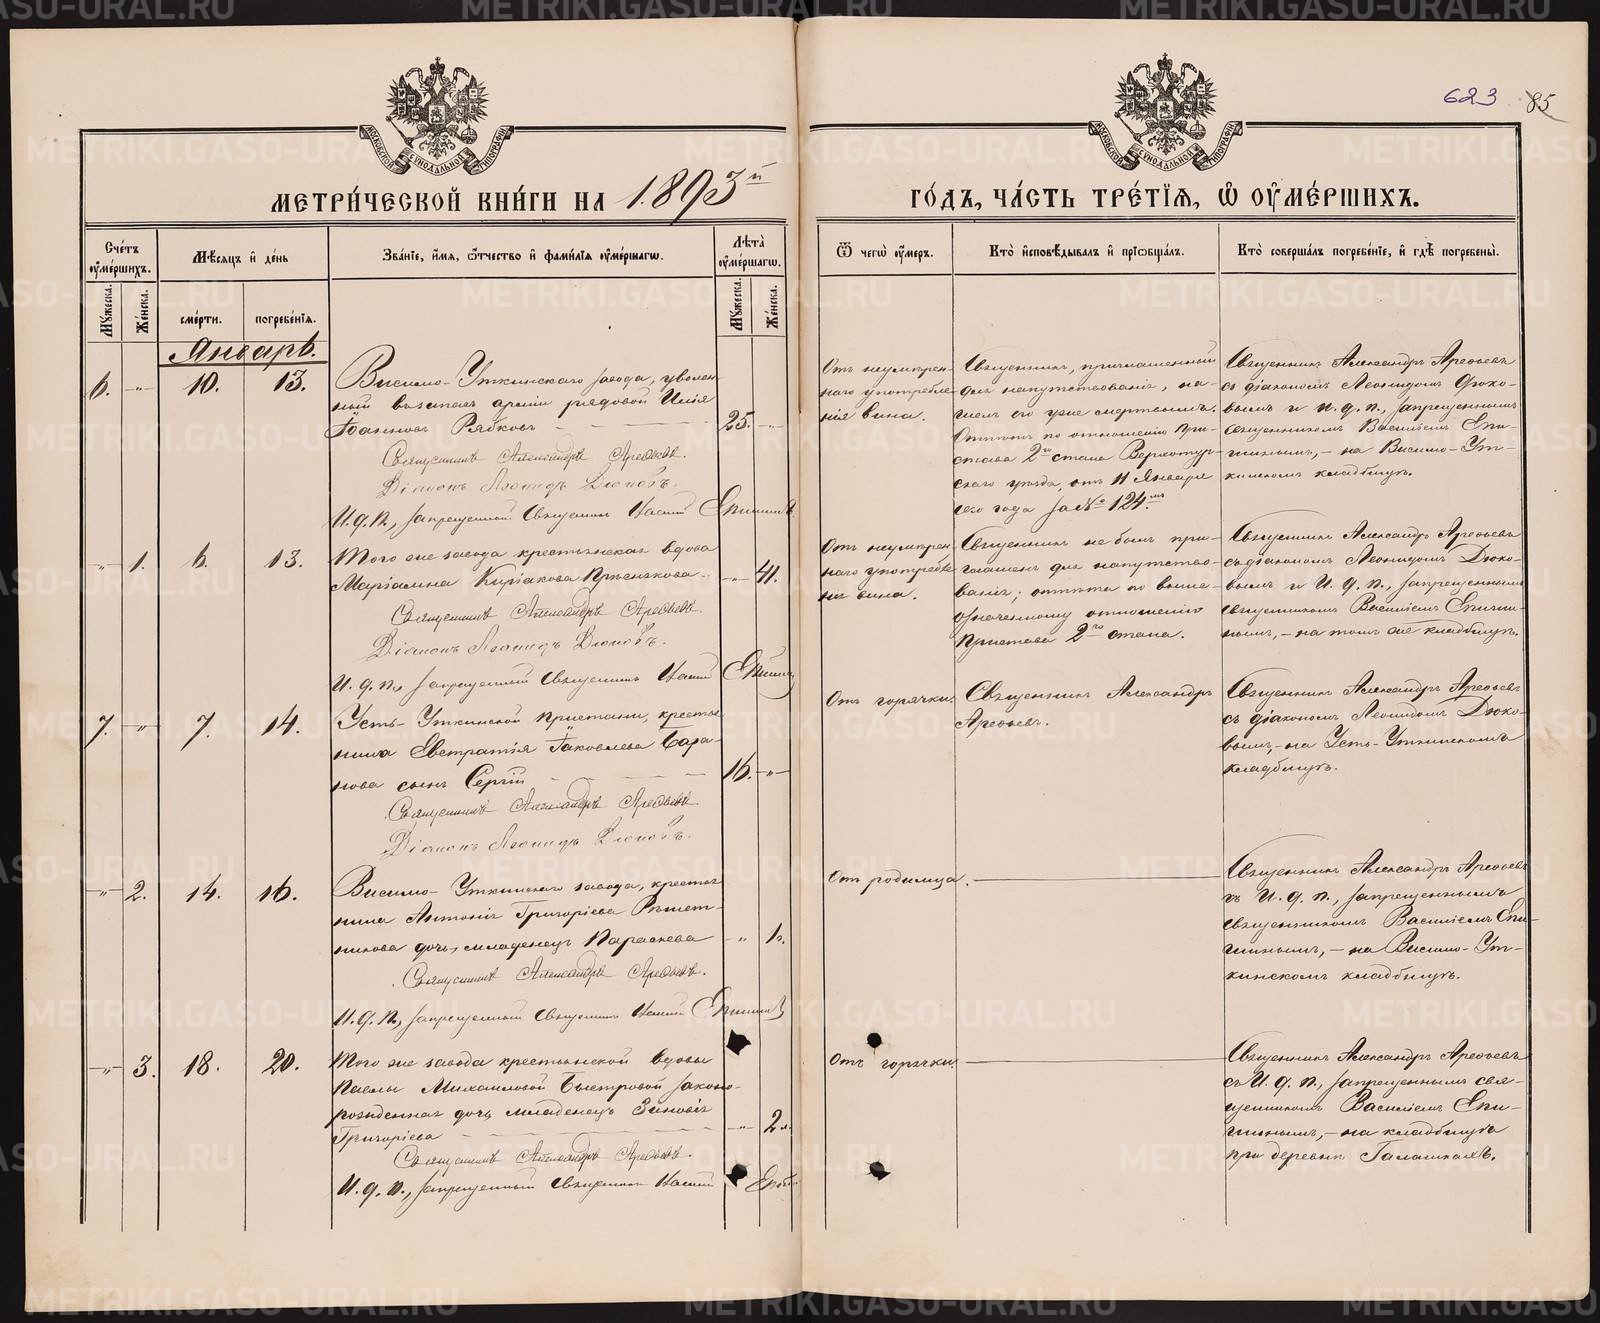 623 85
МОСКОВСКОЙ СѴНОДАЛЬНОЙ ТИПОГРАФІИ
МОСКОВСКОЙ СѴНОДАЛЬНОЙ ТИПОГРАФІИ
МЕТРИ́ЧЕСКОЙ КНИ́ГИ НА 1893й
ГО́ДЪ, ЧА́СТЬ ТРЕ́ТІЯ, Ѡ ОУ҆МЕ́РШИХЪ.
Сче́тъ оу҆ме́ршихъ.
Мꙋ́жеска.
Же́нска.
Мѣ́сяцъ и҆ де́нь
сме́рти.
погребе́нія.
Зва́ніе, и҆́мя, ѻ҆́тчество и҆ фами́лія оу҆ме́ршагѡ.
Лѣ́та оу҆ме́ршагѡ.
Мꙋ́жеска.
Же́нска.
Ѿ чегѡ̀ оу҆́меръ.
Кто̀ и҆сповѣ́дывалъ и҆ прїѡбща́лъ.
Кто̀ соверша́лъ погребе́ніе, и҆ гдѣ̀ погребены̀.
Январь.
6. -„- 10. 13.
Висимо-Уткинскаго завода, уволен-
ный въ запасъ арміи рядовой Илія
Іоанновъ Рябковъ 25. -„-
Священникъ Александръ Арефьевъ.
Діаконъ Леонидъ Дюковъ.
И. д. п., запрещенный Священникъ Василій Епишинъ
Отъ неумѣрен-
наго употребле-
нія вина.
Священникъ, приглашенный
для напутствованія, на-
шелъ его уже мертвымъ.
Отпѣтъ по отношенію При-
става 2го стана Верхотур-
скаго уѣзда, отъ 11 Января
сего года за № 124мъ
Священникъ Александръ Арефьевъ
съ діакономъ Леонидомъ Дюко-
вымъ и И. д. п., запрещеннымъ
священникомъ Василіемъ Епи-
шинымъ, - на Висимо-Ут-
кинскомъ кладбищѣ.
-„- 1. 6. 13.
Того же завода крестьянская вдова
Маріамна Киріакова Прѣснякова -„- 41.
Священникъ Александръ Арефьевъ.
Діаконъ Леонидъ Дюковъ.
И. д. п., запрещенный Священникъ Василій Епишинъ
Отъ неумѣрен-
наго употребле-
нія вина.
Священникъ не былъ при-
глашенъ для напутство-
ванія; отпѣта по выше-
означенному отношенію
Пристава 2го стана.
Священникъ Александръ Арефьевъ
съ діакономъ Леонидомъ Дюко-
вымъ и И. д. п., запрещеннымъ
священникомъ Василіемъ Епиши-
нымъ, - на томъ же кладбищѣ.
7. -„- 7. 14.
Усть-Уткинской пристани, крестья-
нина Евстратія Іаковлева Бара-
нова сынъ Сергій 16. -„-
Священникъ Александръ Арефьевъ.
Діаконъ Леонидъ Дюковъ.
Отъ горячки.
Священникъ Александръ
Арефьевъ.
Священникъ Александръ Арефьевъ
съ діакономъ Леонидомъ Дюко-
вымъ, - на Усть-Уткинскомъ
кладбищѣ.
-„- 2. 14. 16.
Висимо-Уткинскаго завода, крестья-
нина Антонія Григоріева Рѣшет-
никова дочь, младенецъ Параскева -„- 1г.
Священникъ Александръ Арефьевъ.
И. д. п., запрещенный Священникъ Василій Епишинъ
Отъ родимца.
Священникъ Александръ Арефьевъ
съ И. д. п., запрещеннымъ
священникомъ Василіемъ Епи-
шинымъ, - на Висимо-Ут-
кинскомъ кладбищѣ.
-„- 3. 18. 20.
Того же завода крестьянской вдовы
Павлы Михаиловой Быстровой закон-
рожденная дочь, младенецъ Зиновія
Григоріева -„- 2 л.
Священникъ Александръ Арефьевъ.
И. д. п., запрещенный Священникъ Василій
Отъ горячки.
Священникъ Александръ Арефьевъ
съ И. д. п., запрещеннымъ свя-
щенникомъ Василіемъ Епи-
шинымъ, - на кладбищѣ
при деревнѣ Галашкахъ.
METRIKI.GASO-URAL.RU